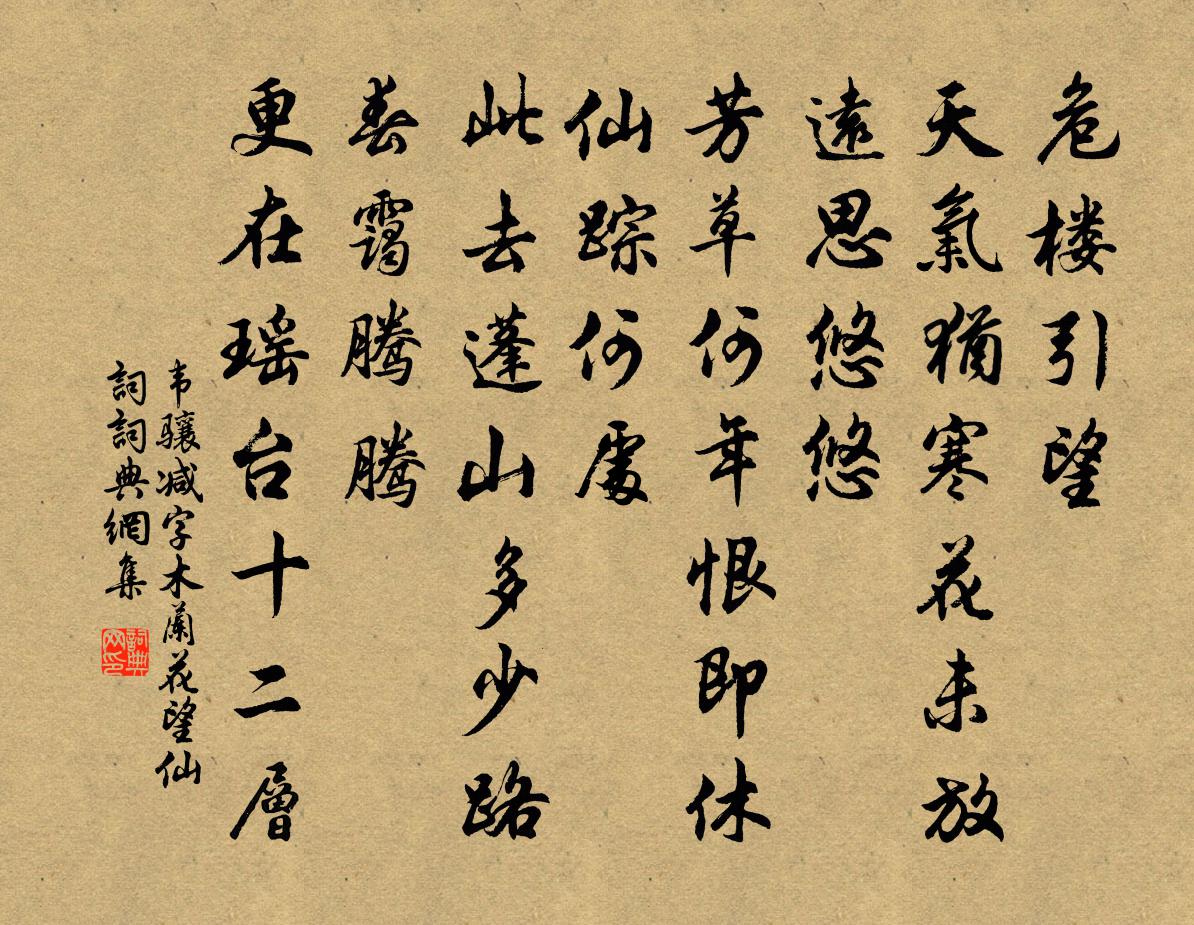 危楼引望
天氣猶寒花未放
遠思悠悠
芳草何年恨即休
仙踪何處
此去蓬山多少路
春靄騰騰
更在瑶台十二層
韦骧减字木蘭花望仙
詞詞典網集
詞典网印